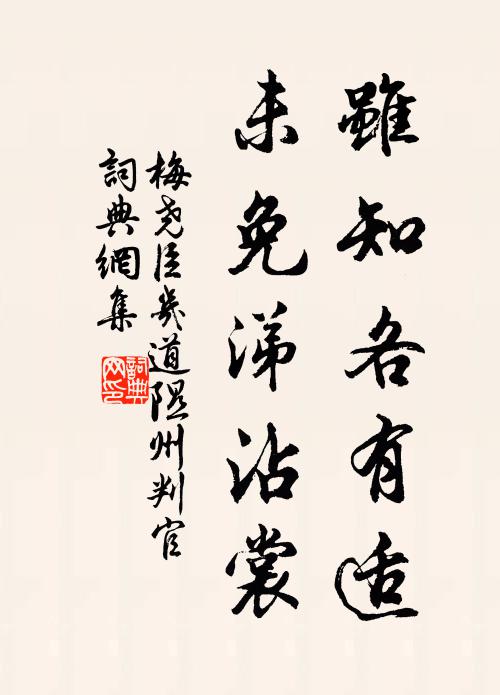 雖知各有适
未免涕沾裳
梅堯臣幾道隰州判官
詞典網集
詞典网印